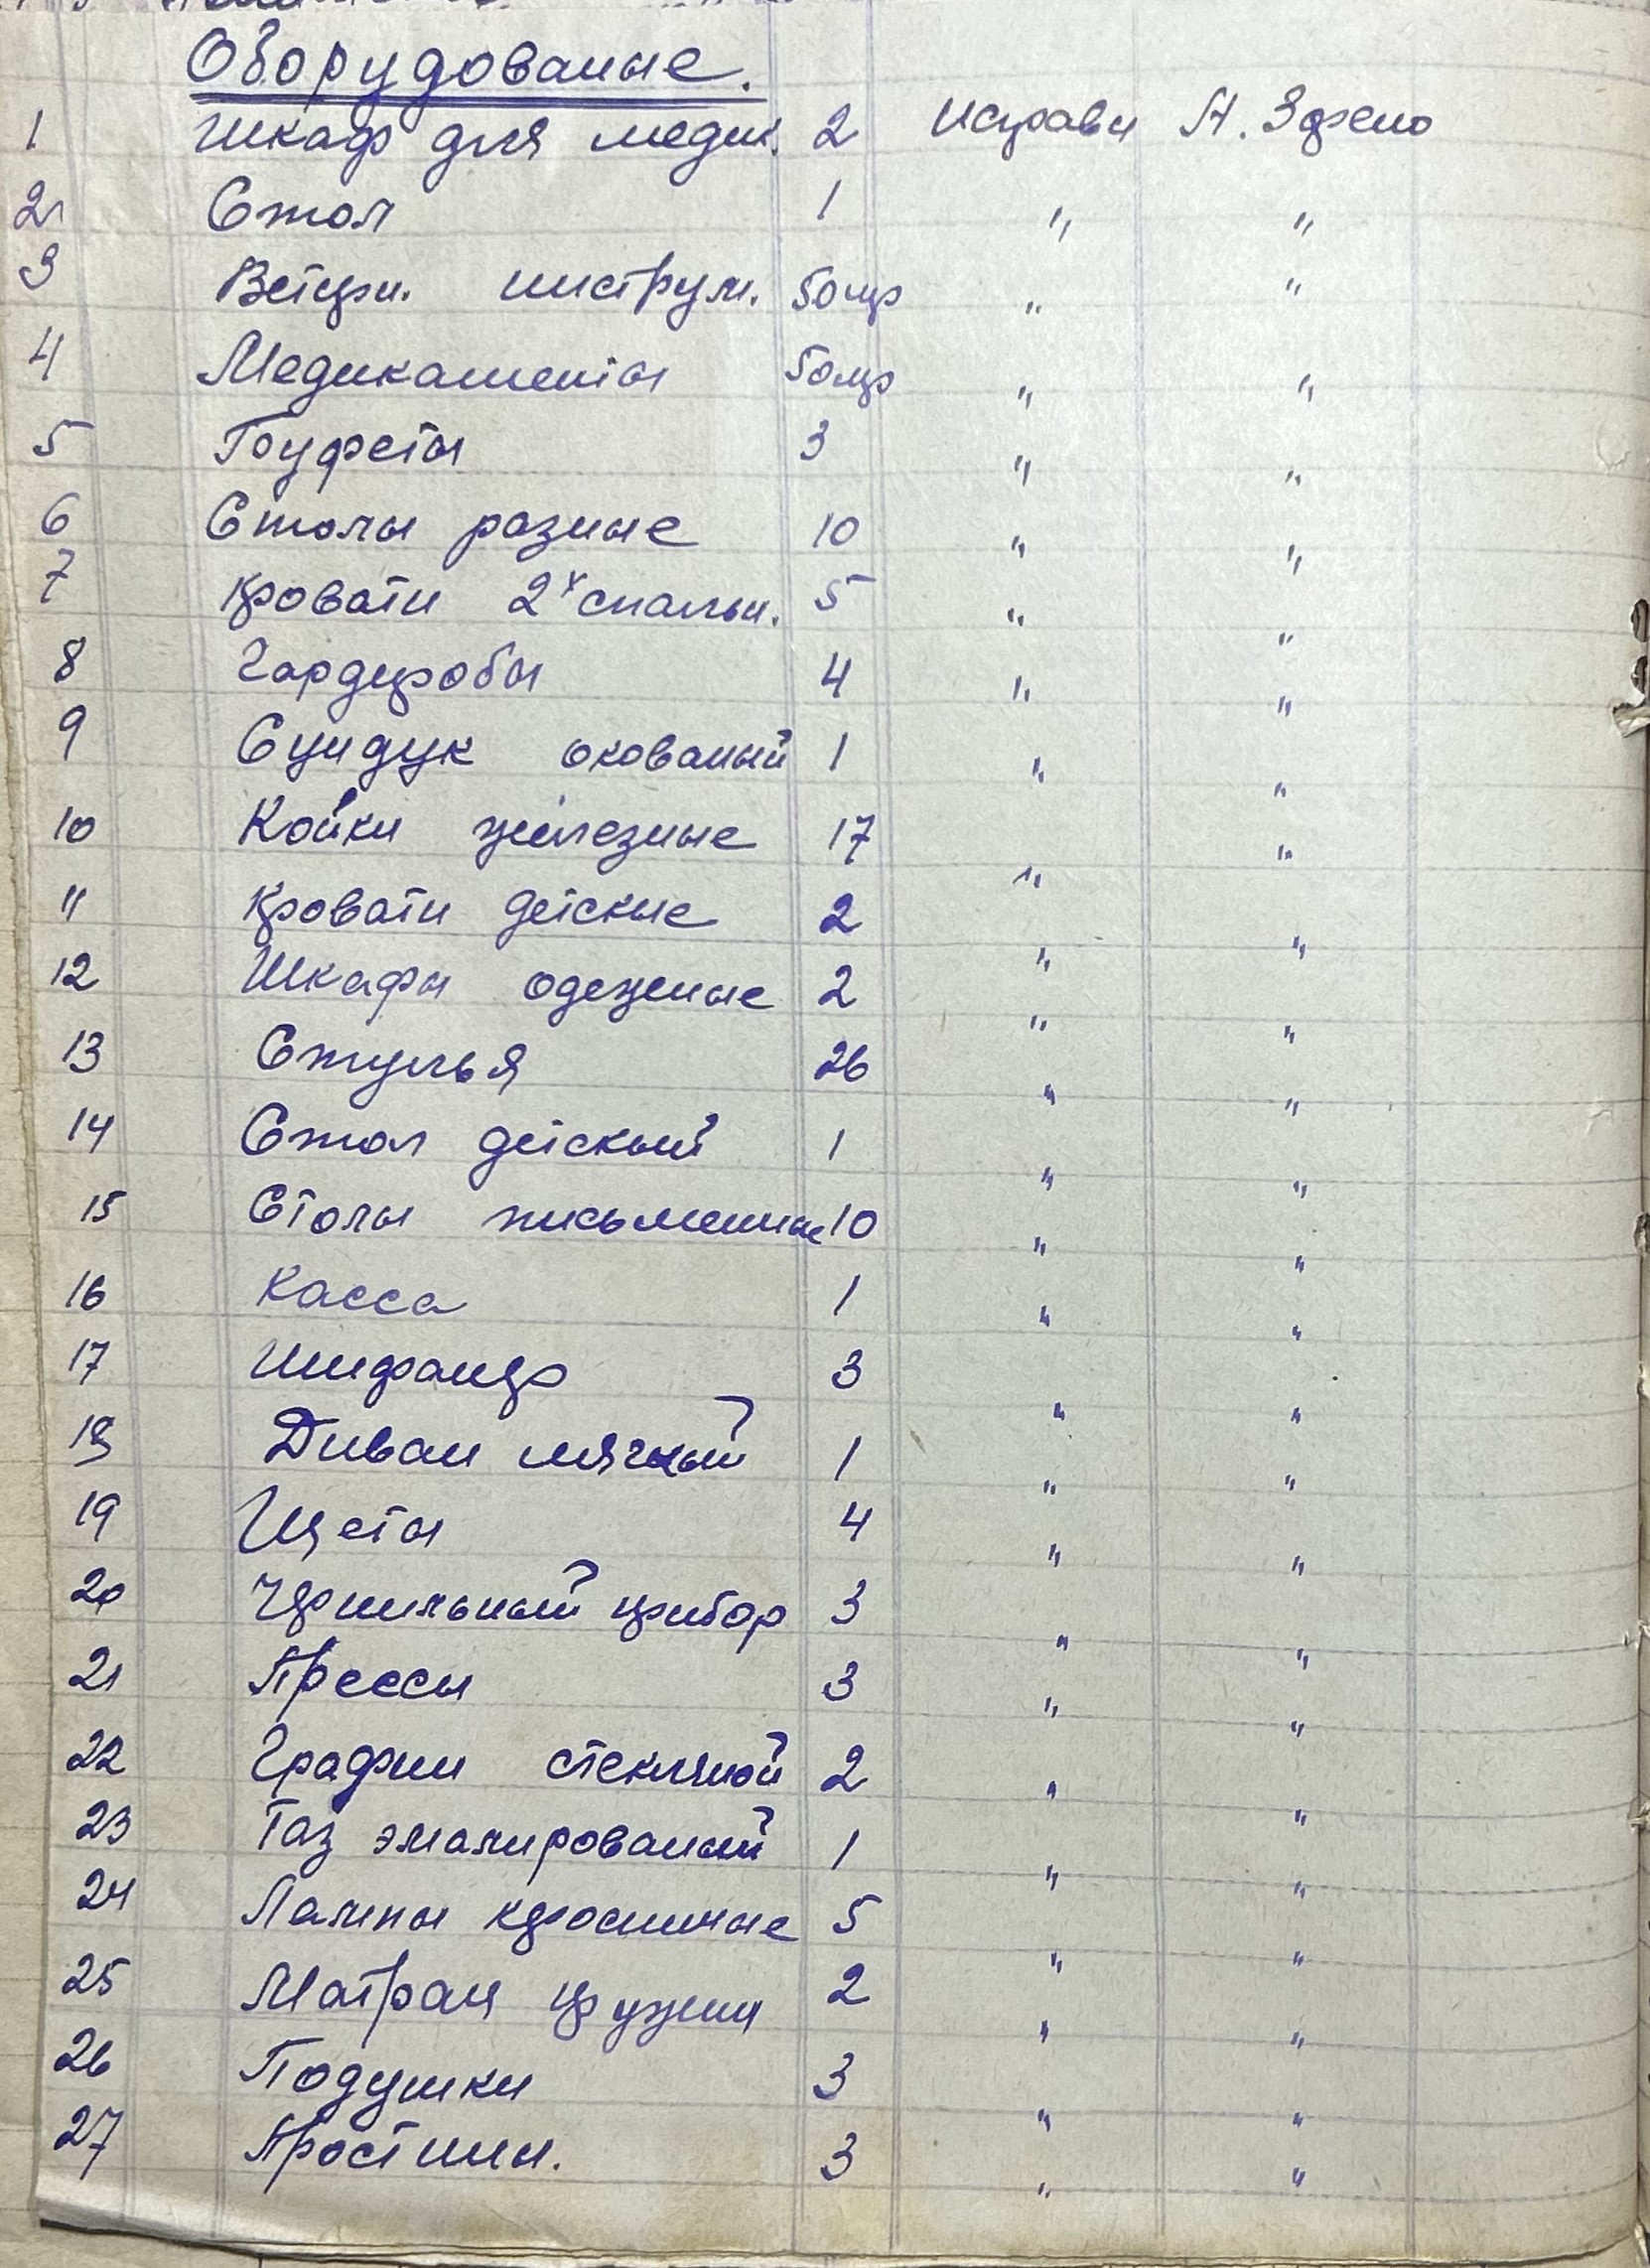 Оборудование.
1 Шкаф для медик. 2 Исправн Н. Здрено
2 Стол 1 " "
3 Ветерн. инструм. 50 шт " "
4 Медикаменты " "
5 3 " "
6 Столы разные 10 " "
7 Кровати 2х спальн. 5 " "
8 Гардеробы 4 " "
9 Сундук окованый 1 " "
10 Койки железные 17 " "
11 Кровати детские 2 " "
12 Шкафы одежные 2 " "
13 Стулья 26 " "
14 Стол детский 1 " "
15 Столы письменные 10 " "
16 Касса 1 " "
17 Шифанер 3 " "
18 Диван мягкий 1 " "
19 Щеты 4 " "
20 Чернильный прибор 3 " "
21 Прессы 3 " "
22 Графин стекляной 2 " "
23 Таз эмалированый 1 " "
24 Лампы керосинные 5 " "
25 Матрац пружин 2 " "
26 Подушки 3 " "
27 Простини. 3 " "